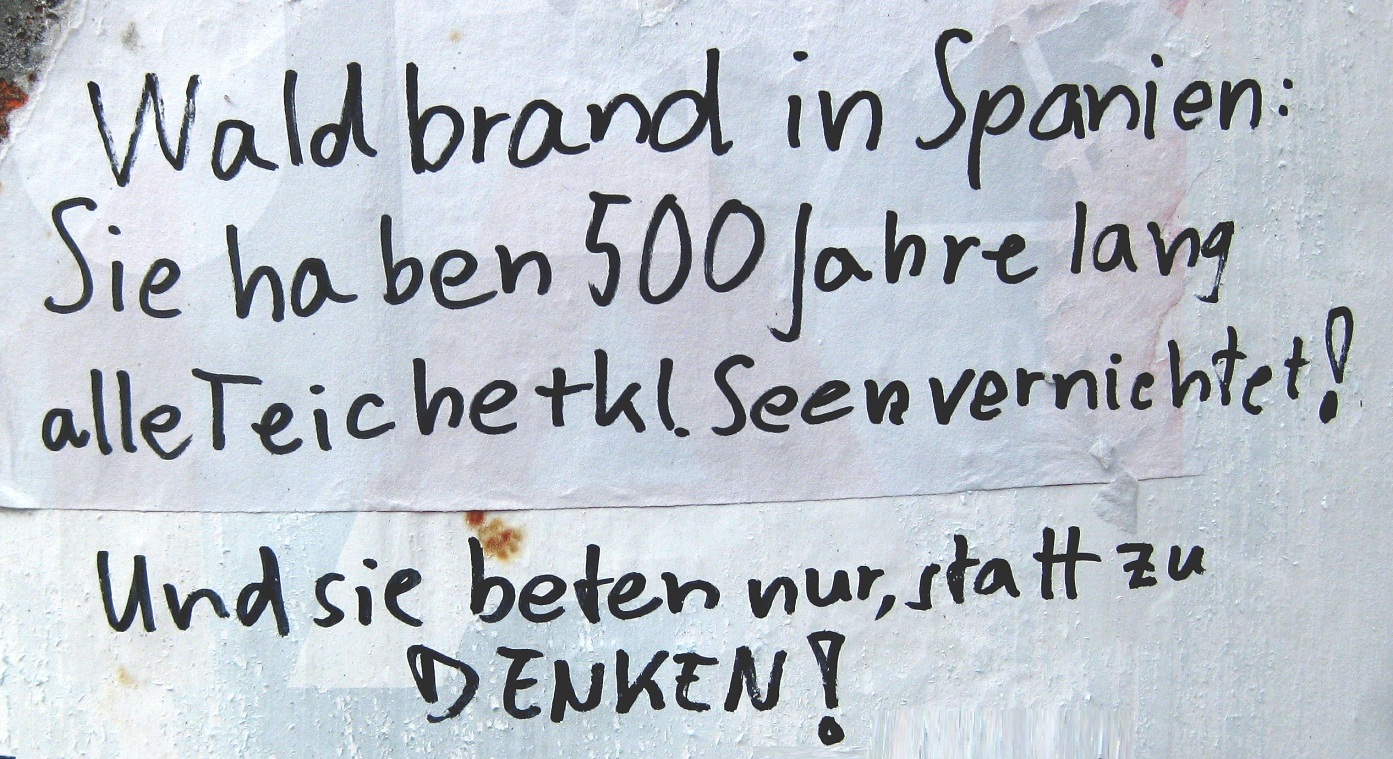 Waldbrand in Spanien:
Sie haben 500 Jahre lang
alle Teiche + kl. Seen vernichtet!
Und sie beten nur, statt zu
DENKEN!